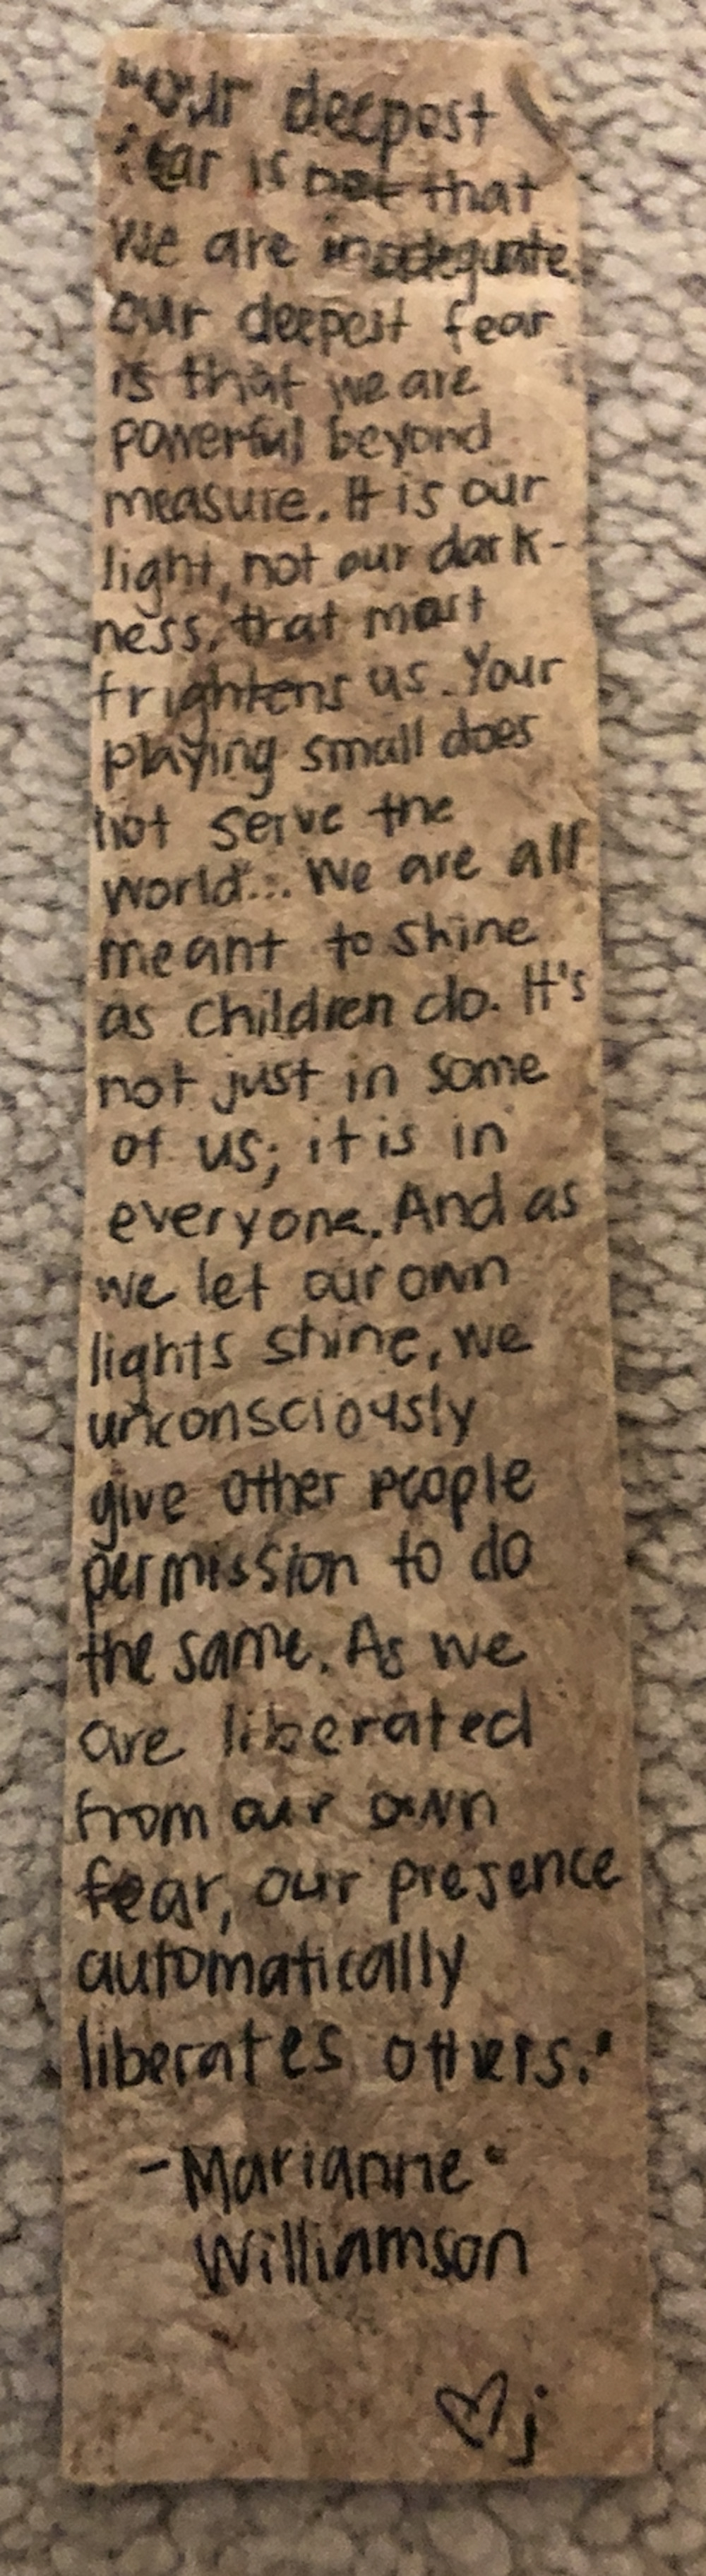 "Our deepest
fear is not that
we are inadequate.
Our deepest fear
is that we are
powerful beyond
measure. It is our
light, not our dark-
ness, that most
frightens us. Your
playing small does
not serve the
world... We are all
meant to shine
as children do. It's
not just in some
of us; it is in
everyone. And as
we let our own
lights shine, we
unconsciously
give other people
permission to do
the same. As we
are liberated
from our own
fear, our presence
automatically
liberates others."
-Marianne
Williamson
♡j